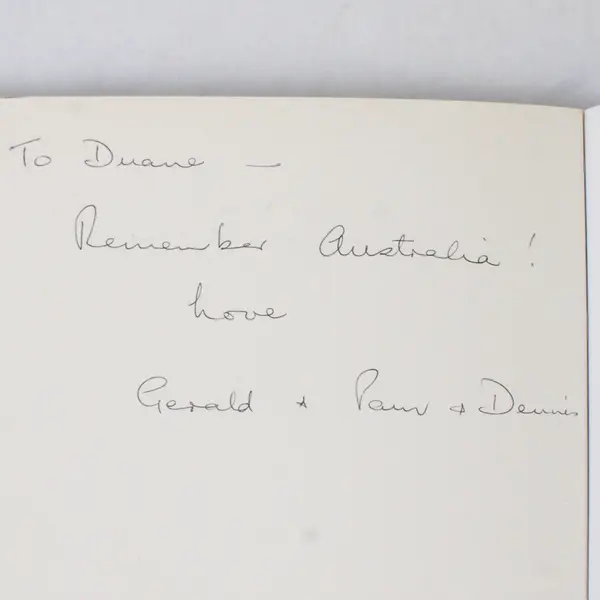 To Duane —
Remember Australia!
Love
Gerald & Pam & Dennis